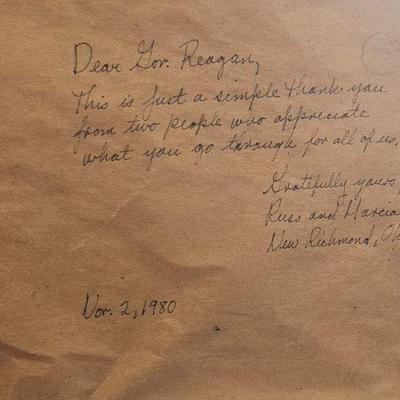 Dear Gov. Reagan,
This is just a simple thank you
from two people who appreciate
what you go through for all of us.
Gratefully yours,
Russ and Marcia
New Richmond, Oh
Nov. 2, 1980